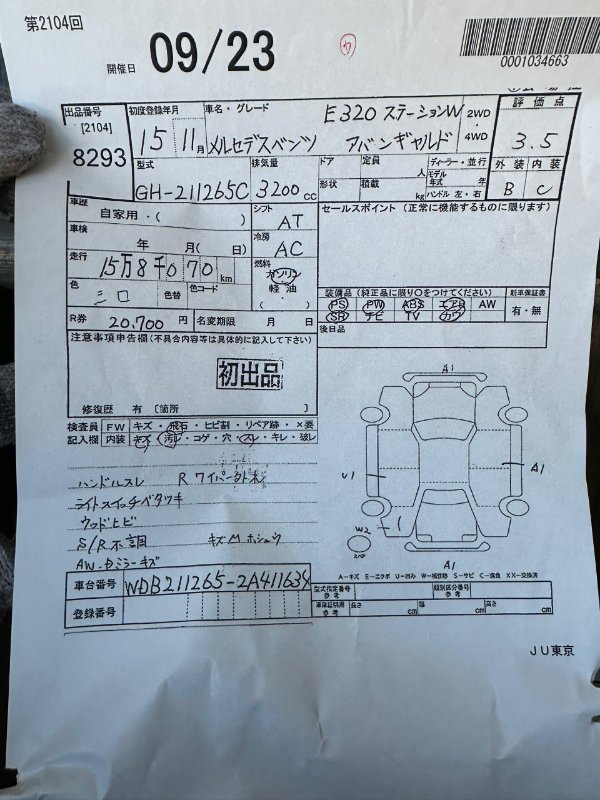 第2104回
開催日 09/23
カ
0001034663
出品番号 初度登録年月 車名・グレード E320 ステーションW 2WD 評価点
[2104] 8293 15 11月 メルセデスベンツ アバンギャルド 4WD 3.5
型式 排気量 ドア 定員 人 ディーラー・並行 外装 内装
GH-211265C 3200cc 形状 積載 kg モデル年式 年 ハンドル 左・右 B C
車歴 自家用・( ) シフト AT セールスポイント (正常に機能するものに限ります)
車検 年 月( 日) 冷房 AC
走行 15万8千070km 燃料 ガソリン 軽油・( )
色 シロ 色替 色コード
装備品 (純正品に限り○をつけてください) 記車保証書
PS PW ABS エアB AW 有・無
SR ナビ TV カワ
R券 20,700円 名変期限 月 日 後日品
注意事項申告欄 (不具合内容等は具体的に記入して下さい)
初出品
修復歴 有 〔箇所 〕
検査員 FW キズ・飛石・ヒビ割・リペア跡・×要
記入欄 内装 キズ・汚レ・コゲ・穴・スレ・キレ・破レ
ハンドルスレ R ワイパー
ライトスイッチベタツキ
ウッドヒビ
S/R不調 キズM ホシュウ
AW.ドミラーキズ
A1
U1 A1
W2
A1
A-キズ E-エクボ U-凹み W-補修跡 S-サビ C-腐食 XX-交換済
車台番号 WDB211265-2A411634
登録番号
型式指定番号 参考 類別区分番号 参考
車体証明用 参考 長さ cm 幅 cm 高さ cm
JU東京